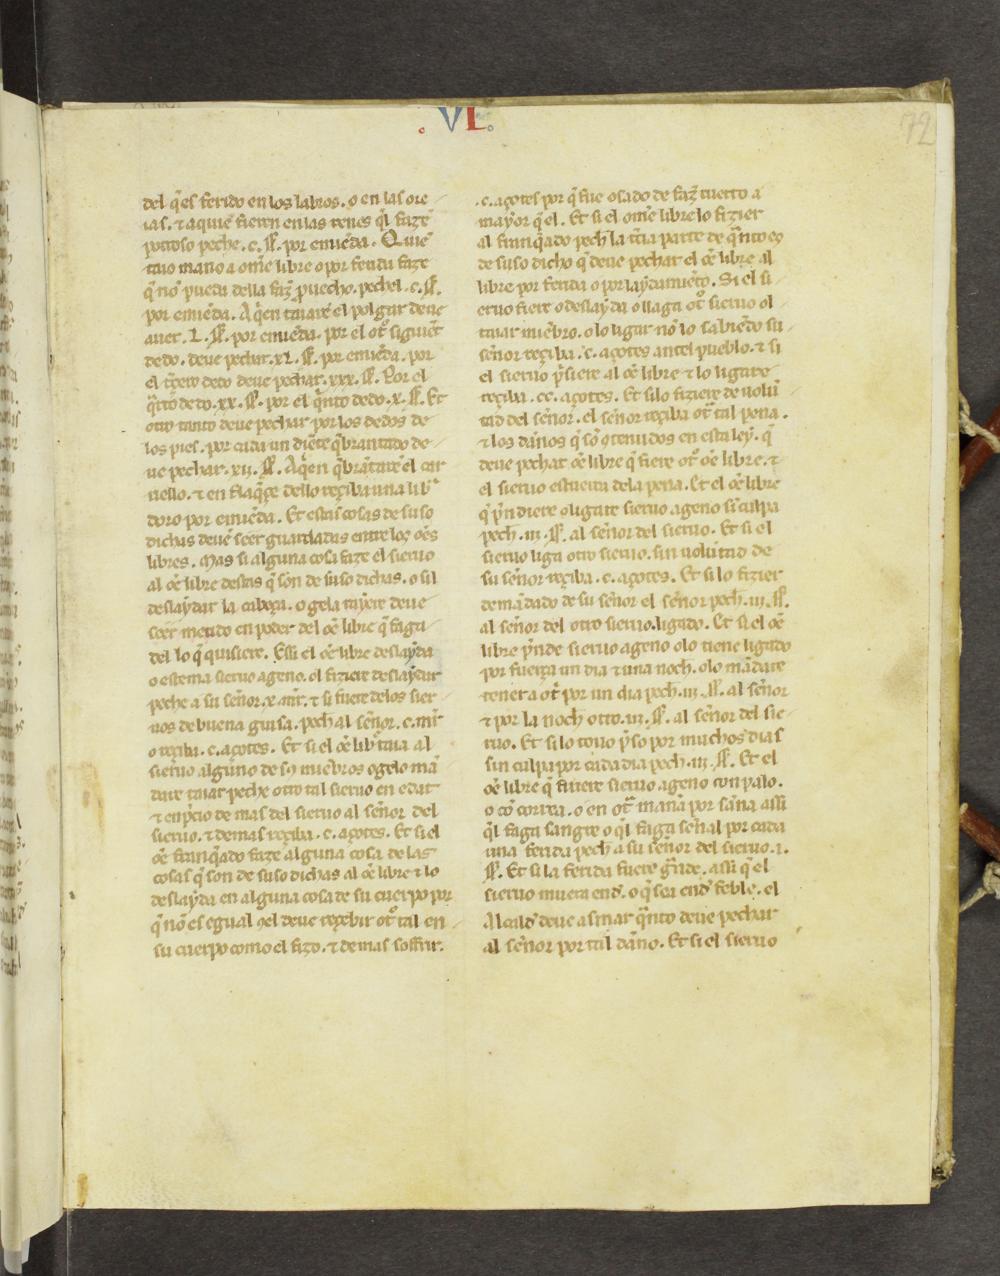 . VI.
72
del q̃ es ferido en los labros. o en las ore
ias. ⁊ aquiẽ fieren en las renes q̃l faze
potroso peche. c. ss̃. por emiẽda. Quiẽ
taio mano a om̃e libre o por ferida faze
q̃ no pueda della faz̃ ꝓuecho. pechel. c. ss̃.
por emiẽda. A q̃en taiarẽ el polgar deue
auer. L. ss̃. por emiẽda. por el otro siguẽt
dedo. deue pechar. xL. ss̃. por emiẽda. por
el tercero dedo deue pechar. xxx. ss̃. Por el
q̃rto dedo. xx. ss̃. por el q̃nto dedo. x. ss̃. Et
otro tanto deue pechar por los dedos de
los pies. por cada un diẽte q̃brantado de
ue pechar. xii. ss̃. A q̃en q̃brãtare el car
uello. ⁊ en flaq̃çe dello reçiba una libᵃ
doro por emiẽda. Et estas cosas de suso
dichas deuẽ seer guardadas entre los oẽs
libres. Mas si alguna cosa faze el sieruo
al oẽ libre destas q̃ son de suso dichas. o sil
deslaydar la cabeça. o gela tayere deue
seer metido en poder del oẽ libre q̃ faga
del lo q̃ quisiere. E ssi el oẽ libre deslayda
o estema sieruo ageno. ol fiziere deslaydar
peche a su señor. x. mr̃. ⁊ si fuere delos sier
uos de buena guisa. pech al señor. c. mr̃
o reçiba. c. açotes. Et si el oẽ libr̃ taia al
sieruo alguno de sos miẽbros o gelo mã
dare taiar peche otro tal sieruo en edat
⁊ en p̃cio de mas del sieruo al señor del
sieruo. ⁊ demas reçiba. c. açotes. Et si el
oẽ franq̃ado faze alguna cosa de las
cosas q̃ son de suso dichas al oẽ libre ⁊ lo
deslayda en alguna cosa de su cuerpo por
q̃ no es egual del deue reçebir otr̃ tal en
su cuerpo como el fizo. ⁊ demas soffrir.
.c. açotes por q̃ fue osado de faz̃ tuerto a
mayor q̃ el. Et si el om̃e libre lo fizier
al franq̃ado pech la t̃cia parte de q̃nto es
de suso dicho q̃ deue pechar el oẽ libre al
libre por ferida o por laydamiẽto. Si el si
eruo fiere o deslayda o llaga otr̃ sieruo ol
taiar miẽbro. o lo ligar no lo sabiẽdo su
señor reçiba. c. açotes antel pueblo. ⁊ si
el sieruo p̃siere al oẽ libre ⁊ lo ligare
reçiba. cc. açotes. Et silo fiziere de volũ
tad del señor. el señor reçiba otr̃ tal pena.
⁊ los daños q̃ sõ ɔtenudos en esta ley. q̃
deue pechar oẽ libre q̃ fiere otr̃ oẽ libre. ⁊
el sieruo estueita dela pena. Et el oẽ libre
q̃ p̃ndiere o ligare sieruo ageno sĩ culpa
pech. iii. ss̃. al señor del sieruo. Et si el
sieruo liga otro sieruo. sin uolũtad de
su señor reçiba. c. açotes. Et si lo fizier
demãdado de su señor el señor pech. iii. ss̃.
al señor del otro sieruo ligado. Et si el oẽ
libre p̃nde sieruo ageno olo tiene ligado
por fuerça un dia ⁊ una noch. olo mãdare
tener a otr̃ por un dia pech. iii. ss̃. al señor
⁊ por la noch otro. iii. ss̃. al señor del sie
ruo. Et si lo touo p̃so por muchos dias
sin culpa por cada dia pech. iii. ss̃. Et el
oẽ libre q̃ firiere sieruo ageno con palo.
o cõ correa. o en otr̃ manã por saña assi
q̃l faga sangre o q̃l faga señal por cada
una ferida pech a su señor del sieruo. i.
ss̃. Et si la ferida fuere g̃nde. assi q̃ el
sieruo muera end̃. o q̃ sea end̃ feble. el
Alcald̃ deue asmar q̃nto deue pechar
al señor por tal daño. Et si el sieruo